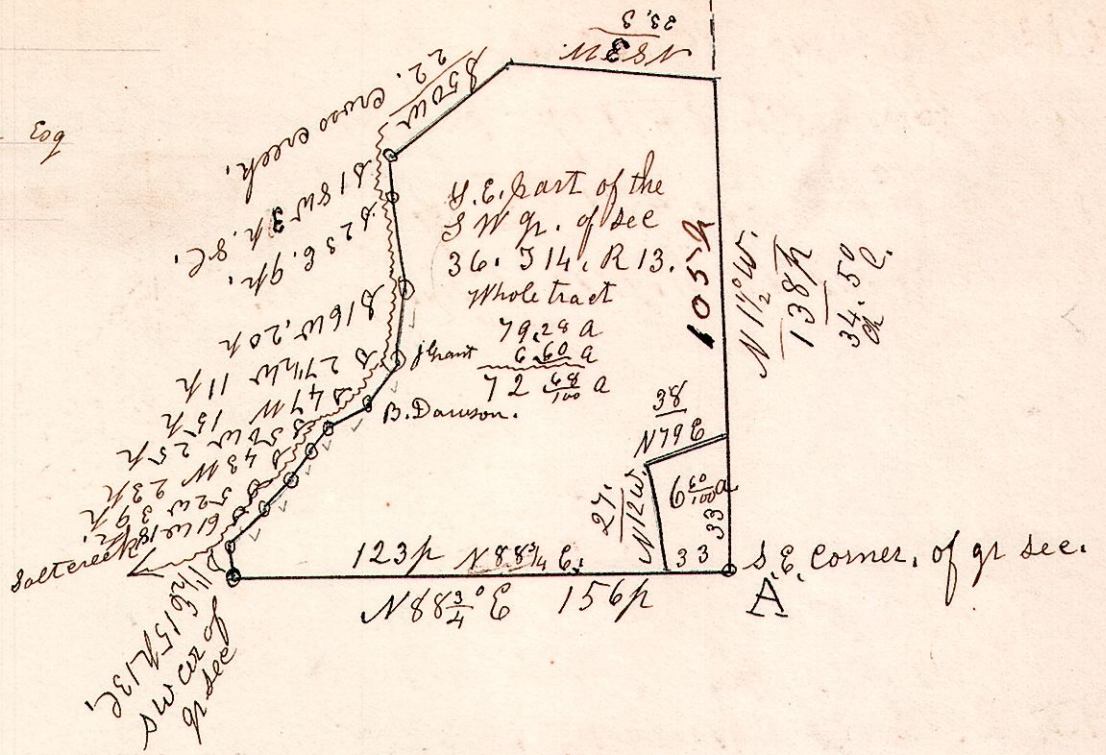 Esq
23,3
N83W.
S50W
22. cross creek.
S18W3p.8l.
S23E.9p.
S16W,20p
S27½W 11p
S47W 15p
S50W 25p
S43W 23p
S52W 39p
61W18p.
Salt creek
S1½E15p13l,
SW cor of
qr sec
S.E. part of the
SW qr. of sec
36. T14, R13.
Whole tract
79,28 a
6.60 a
72 68/100 a
J Grant
B. Dawson.
105p
N1½°W.
138p
34.50
ch l.
38
N79E
27.
N12W.
6 60/100 a
33
33
123p N88¾E.
N88¾°E 156p
S.E. Corner. of qr sec.
A